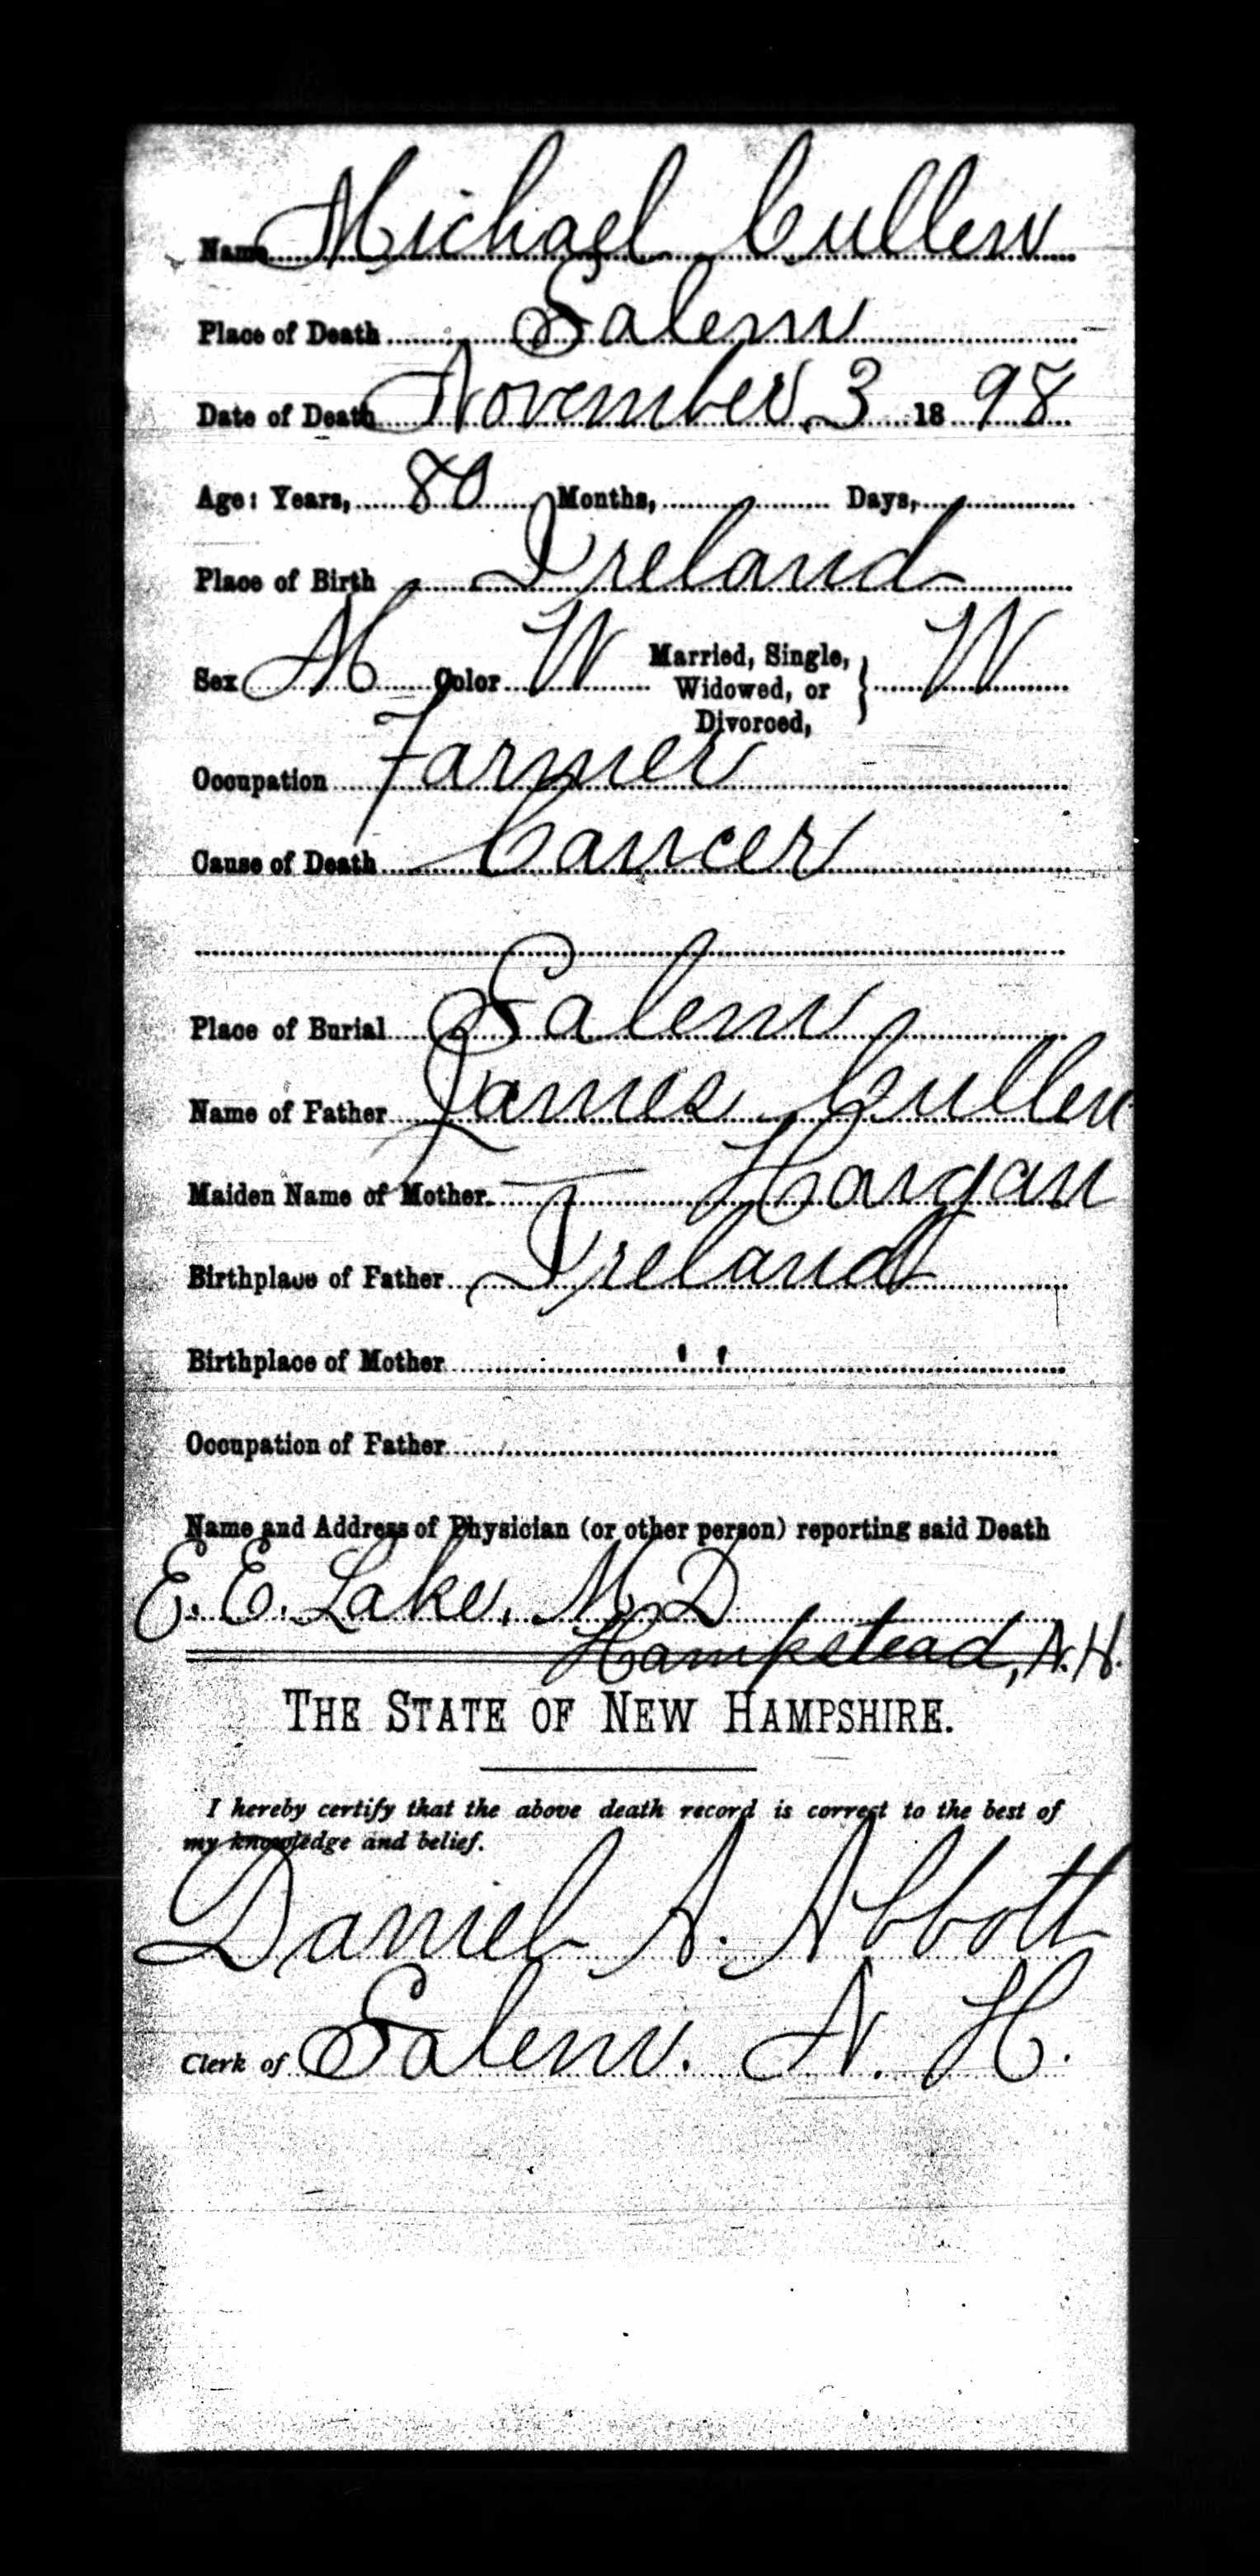 Name Michael Cullen
Place of Death Salem
Date of Death November 3 1898
Age: Years, 80 Months, Days,
Place of Birth Ireland
Sex M Color W Married, Single, Widowed, or Divorced, } W
Occupation Farmer
Cause of Death Cancer
Place of Burial Salem
Name of Father James Cullen
Maiden Name of Mother — Hargan
Birthplace of Father Ireland
Birthplace of Mother "
Occupation of Father
Name and Address of Physician (or other person) reporting said Death
E. E. Lake, M. D
Hampstead, N. H.
THE STATE OF NEW HAMPSHIRE.
I hereby certify that the above death record is correct to the best of
my knowledge and belief.
Daniel A. Abbott
Clerk of Salem. N. H.